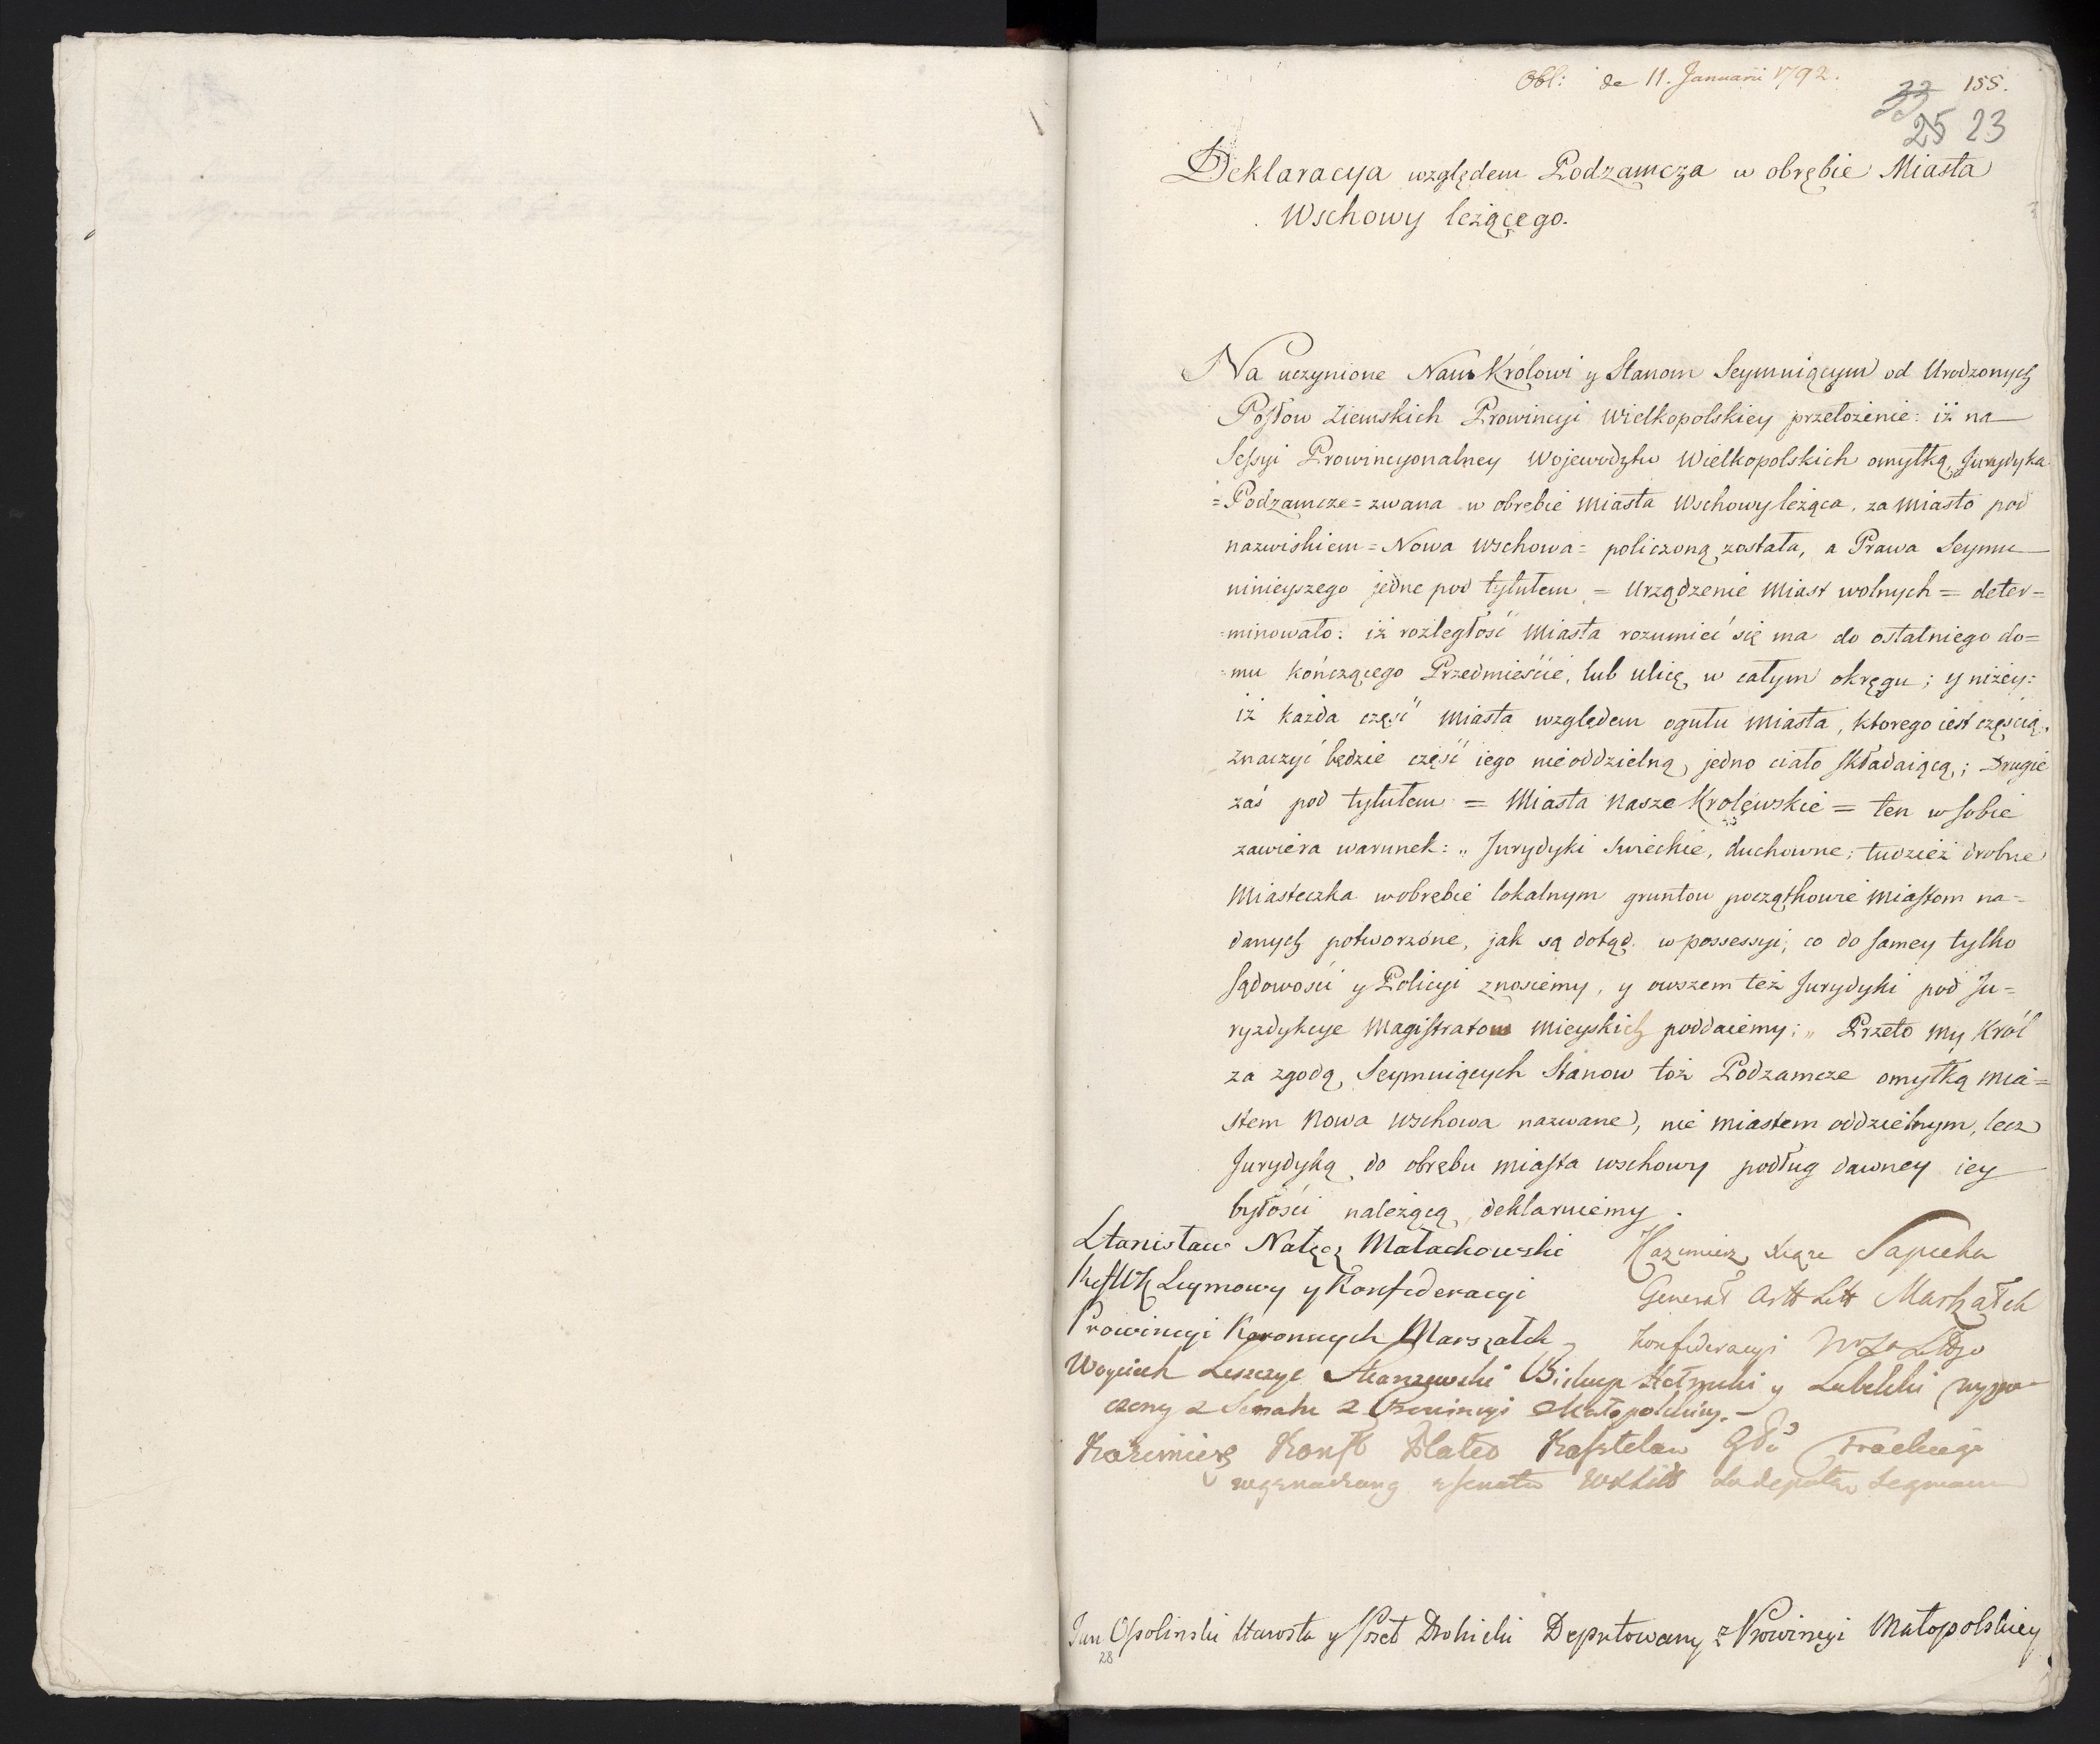 Obl: de 11. Januarii 1792.
155.
25 23
Deklaracya względem Podzamcza w obrębie Miasta
Wschowy leżącego.
Na uczynione Nam Królowi y Stanom Seymuiącym od Urodzonych
Posłow Ziemskich Prowincyi Wielkopolskiey przełożenie: iż na
Sessyi Prowincyonalney Wojewodztw Wielkopolskich omyłką Jurydyka
=Podzamcze= zwana w obrębie Miasta Wschowy leżąca, za Miasto pod
nazwiskiem = Nowa Wschowa = policzoną została, a Prawa Seymu
ninieyszego jedne pod tytułem = Urządzenie Miast wolnych = deter=
=minowało: iż rozległość Miasta rozumieć się ma do ostatniego do=
=mu kończącego Przedmieście, lub ulicę w całym okręgu; y niżey:
iż każda część Miasta względem ogułu Miasta, ktorego iest częścią,
znaczyć będzie część iego nieoddzielną, jedno ciało składaiącą; Drugie
zaś pod tytułem = Miasta Nasze Krolewskie = ten w sobie
zawiera warunek: „Jurydyki Swieckie, duchowne, tudzież drobne
Miasteczka w obrębie lokalnym gruntow początkowie Miastom na=
danych potworzone, jak są dotąd w possessyi, co do samey tylko
sądowości y Policyi znosiemy, y owszem też Jurydyki pod Ju=
ryzdykcye Magistratow Mieyskich poddaiemy;„ Przeto My Krol
za zgodą Seymuiących Stanow toż Podzamcze omyłką Mia=
stem Nowa Wschowa nazwane, nie miastem oddzielnym, lecz
Jurydyką do obrębu miasta Wschowy podług dawney iey
byłości należącą deklaruiemy.
Stanisław Nałęcz Małachowski
Seymowy y Konfederacyi
Prowincyi Koronnych Marszałek
Kazimierz Xiąże Sapieha
Generał Artt Litt Marszałek
Konfederacyi
Woyciech Leszczyc Skarszewski Biskup Chełmski y Lubelski wyzna
czony z Senatu z Prowincyi Małopolskiey.
Kazimierz Konst Plater Kasztelan Trockiego
wyznaczony z Senatu
Jan Ossolinski Starosta y Poseł Drohicki Deputowany z Prowincyi Małopolskiey
28